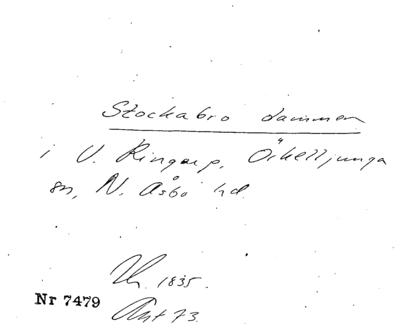 Stockabro dammen
i V. Ringarp, Örkelljunga
sn, N. Åsbo hd.
1835.
Nr 7479
Ant 73.